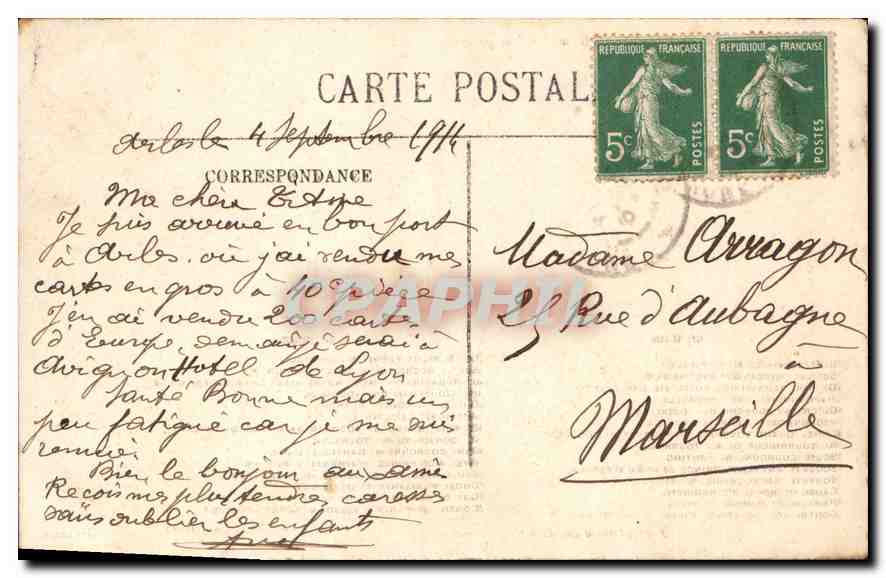 CARTE POSTALE
Arles le 4 Septembre 1914
CORRESPONDANCE
Ma chère Titine
Je suis arrivé en bon port
à Arles. où j'ai vendu mes
cartes en gros à 40c pièce
J'en ai vendu 200 cartes
d'Europe, demain je serai à
Avignon Hotel de Lyon
Santé Bonne mais un
peu fatigué car je me suis
remué.
Bien le bonjour aux amis
Recois mes plus tendres caresses
sans oublier les enfants
REPUBLIQUE FRANÇAISE
5c POSTES
REPUBLIQUE FRANÇAISE
5c POSTES
Madame Arragon
25 Rue d'Aubagne
à
Marseille
CPAPHIL